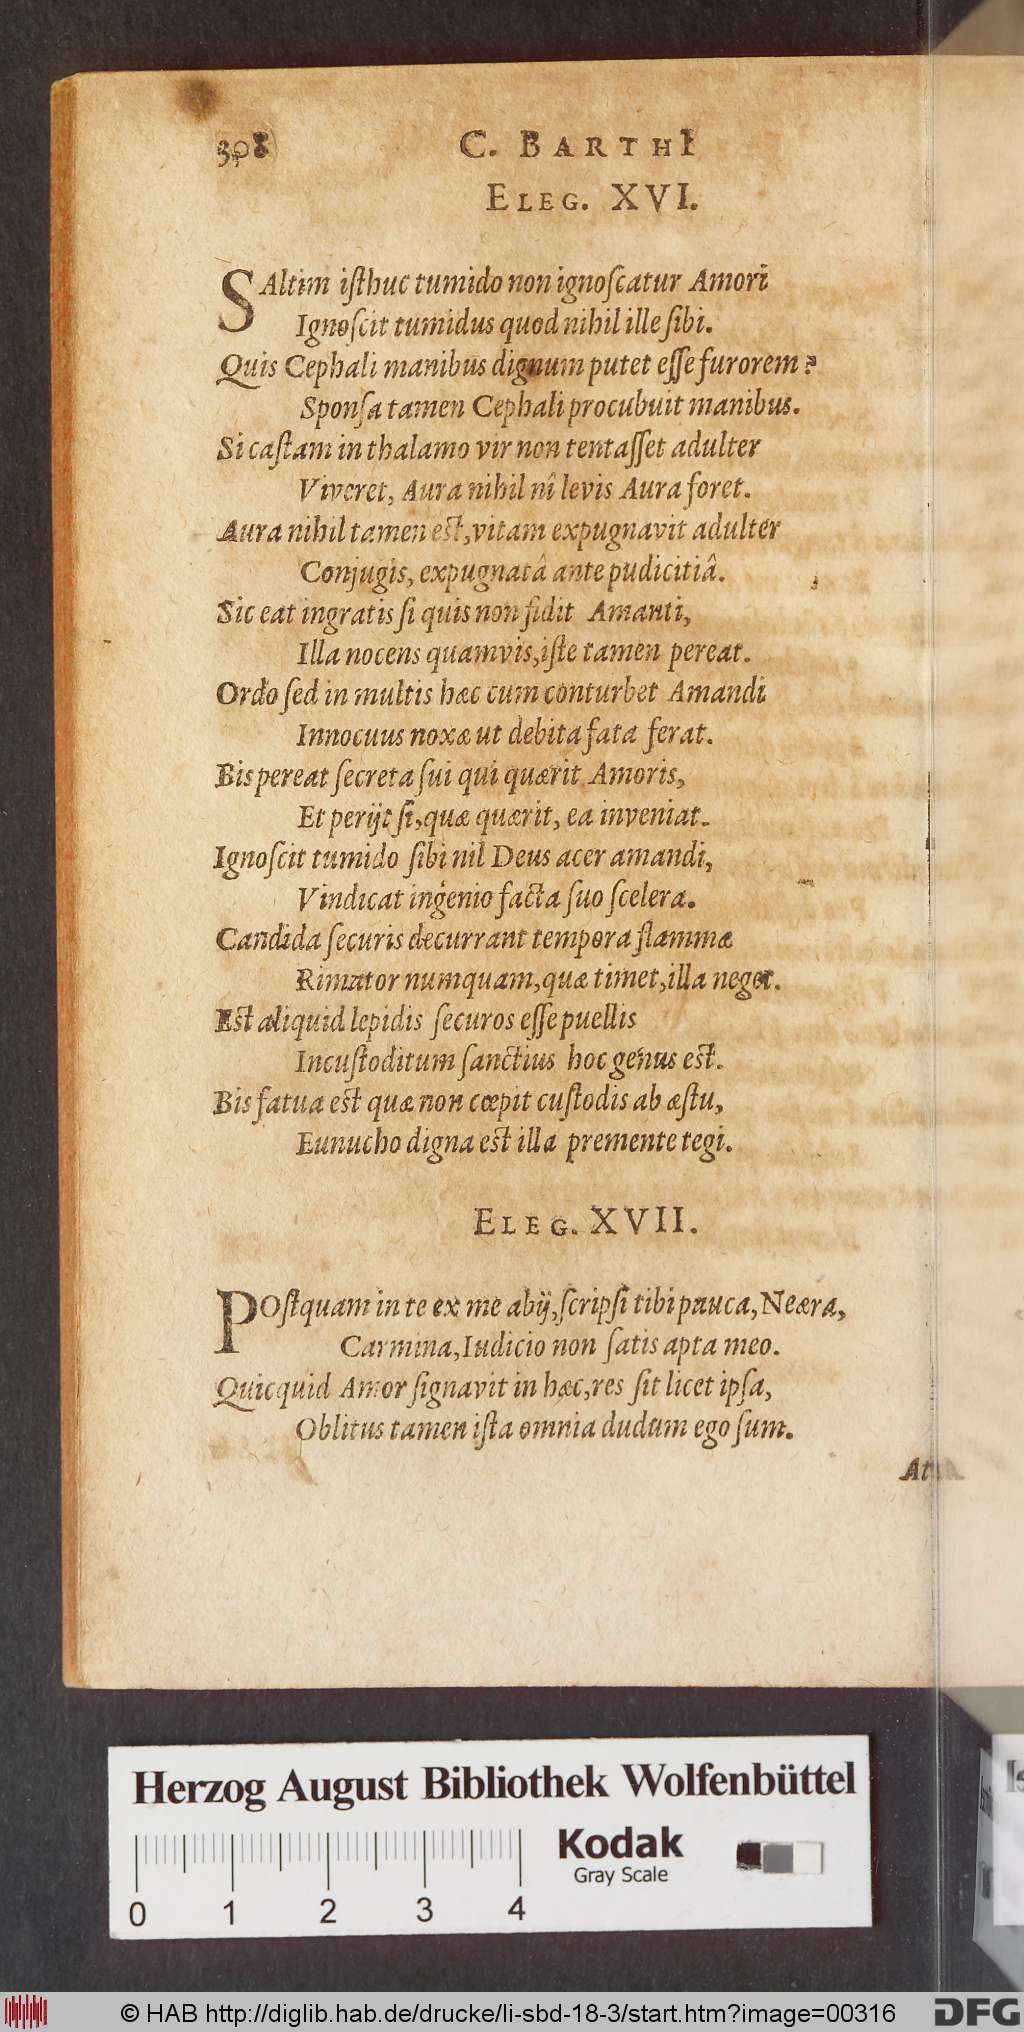 308
C. BARTHI
ELEG. XVI.
SAltim iſthuc tumido non ignoſcatur Amori
Ignoſcit tumidus quod nihil ille ſibi.
Quis Cephali manibus dignum putet eſſe furorem?
Sponſa tamen Cephali procubuit manibus.
Si caſtam in thalamo vir non tentaſſet adulter
Viveret, Aura nihil nî levis Aura foret.
Aura nihil tamen est, vitam expugnavit adulter
Conjugis, expugnatâ ante pudicitiâ.
Sic eat ingratis ſi quis non fidit Amanti,
Illa nocens quamvis, iſte tamen pereat.
Ordo ſed in multis hæc cum conturbet Amandi
Innocuus noxæ ut debita fata ferat.
Bis pereat ſecreta ſui qui quærit Amoris,
Et perijt ſi, quæ quærit, ea inveniat.
Ignoſcit tumido ſibi nil Deus acer amandi,
Vindicat ingenio facta ſuo ſcelera.
Candida ſecuris decurrant tempora flammæ
Rimator numquam, quæ timet, illa neget.
Est aliquid lepidis ſecuros eſſe puellis
Incuſtoditum ſanctius hoc genus est.
Bis fatua est quæ non cœpit cuſtodis ab æſtu,
Eunucho digna est illa premente tegi.
ELEG. XVII.
POſtquam in te ex me abij, ſcripſi tibi pauca, Neæra,
Carmina, Iudicio non ſatis apta meo.
Quicquid Amor ſignavit in hæc, res ſit licet ipſa,
Oblitus tamen iſta omnia dudum ego ſum.
Herzog August Bibliothek Wolfenbüttel
Kodak
Gray Scale
0 1 2 3 4
© HAB http://diglib.hab.de/drucke/li-sbd-18-3/start.htm?image=00316
DFG